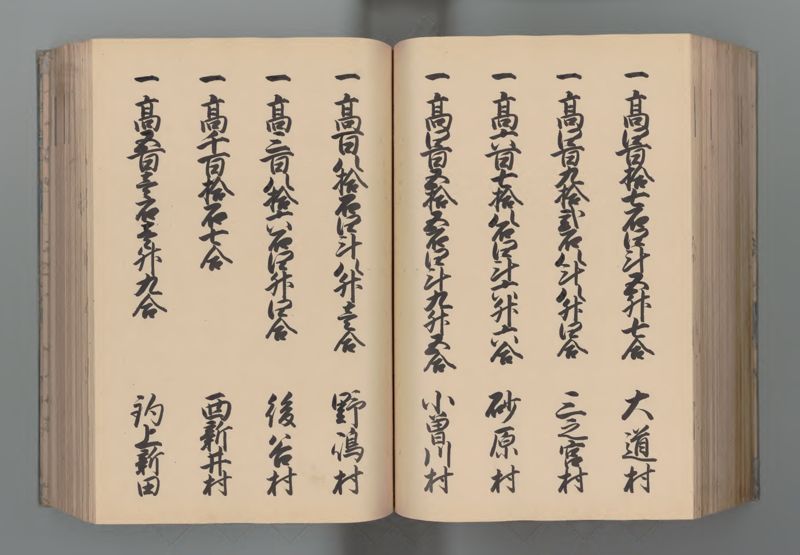 一 高四百拾七石四斗五升七合 大道村
一 高四百九拾弐石八斗八升四合 三之宮村
一 高六百七拾八石四斗六升六合 砂原村
一 高四百五拾五石四斗九升五合 小曽川村
一 高百八拾石四斗八升壱合 野嶋村
一 高二百八拾六石四升四合 後谷村
一 高千百拾石七合 西新井村
一 高五百壱石壱升九合 釣上新田